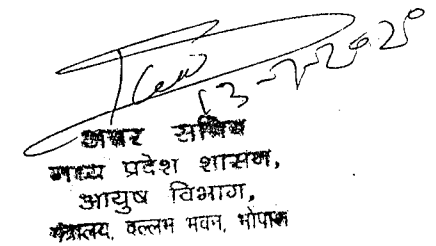 13-7-2020
अवर सचिव
मध्य प्रदेश शासन,
आयुष विभाग,
मंत्रालय, वल्लभ भवन, भोपाल